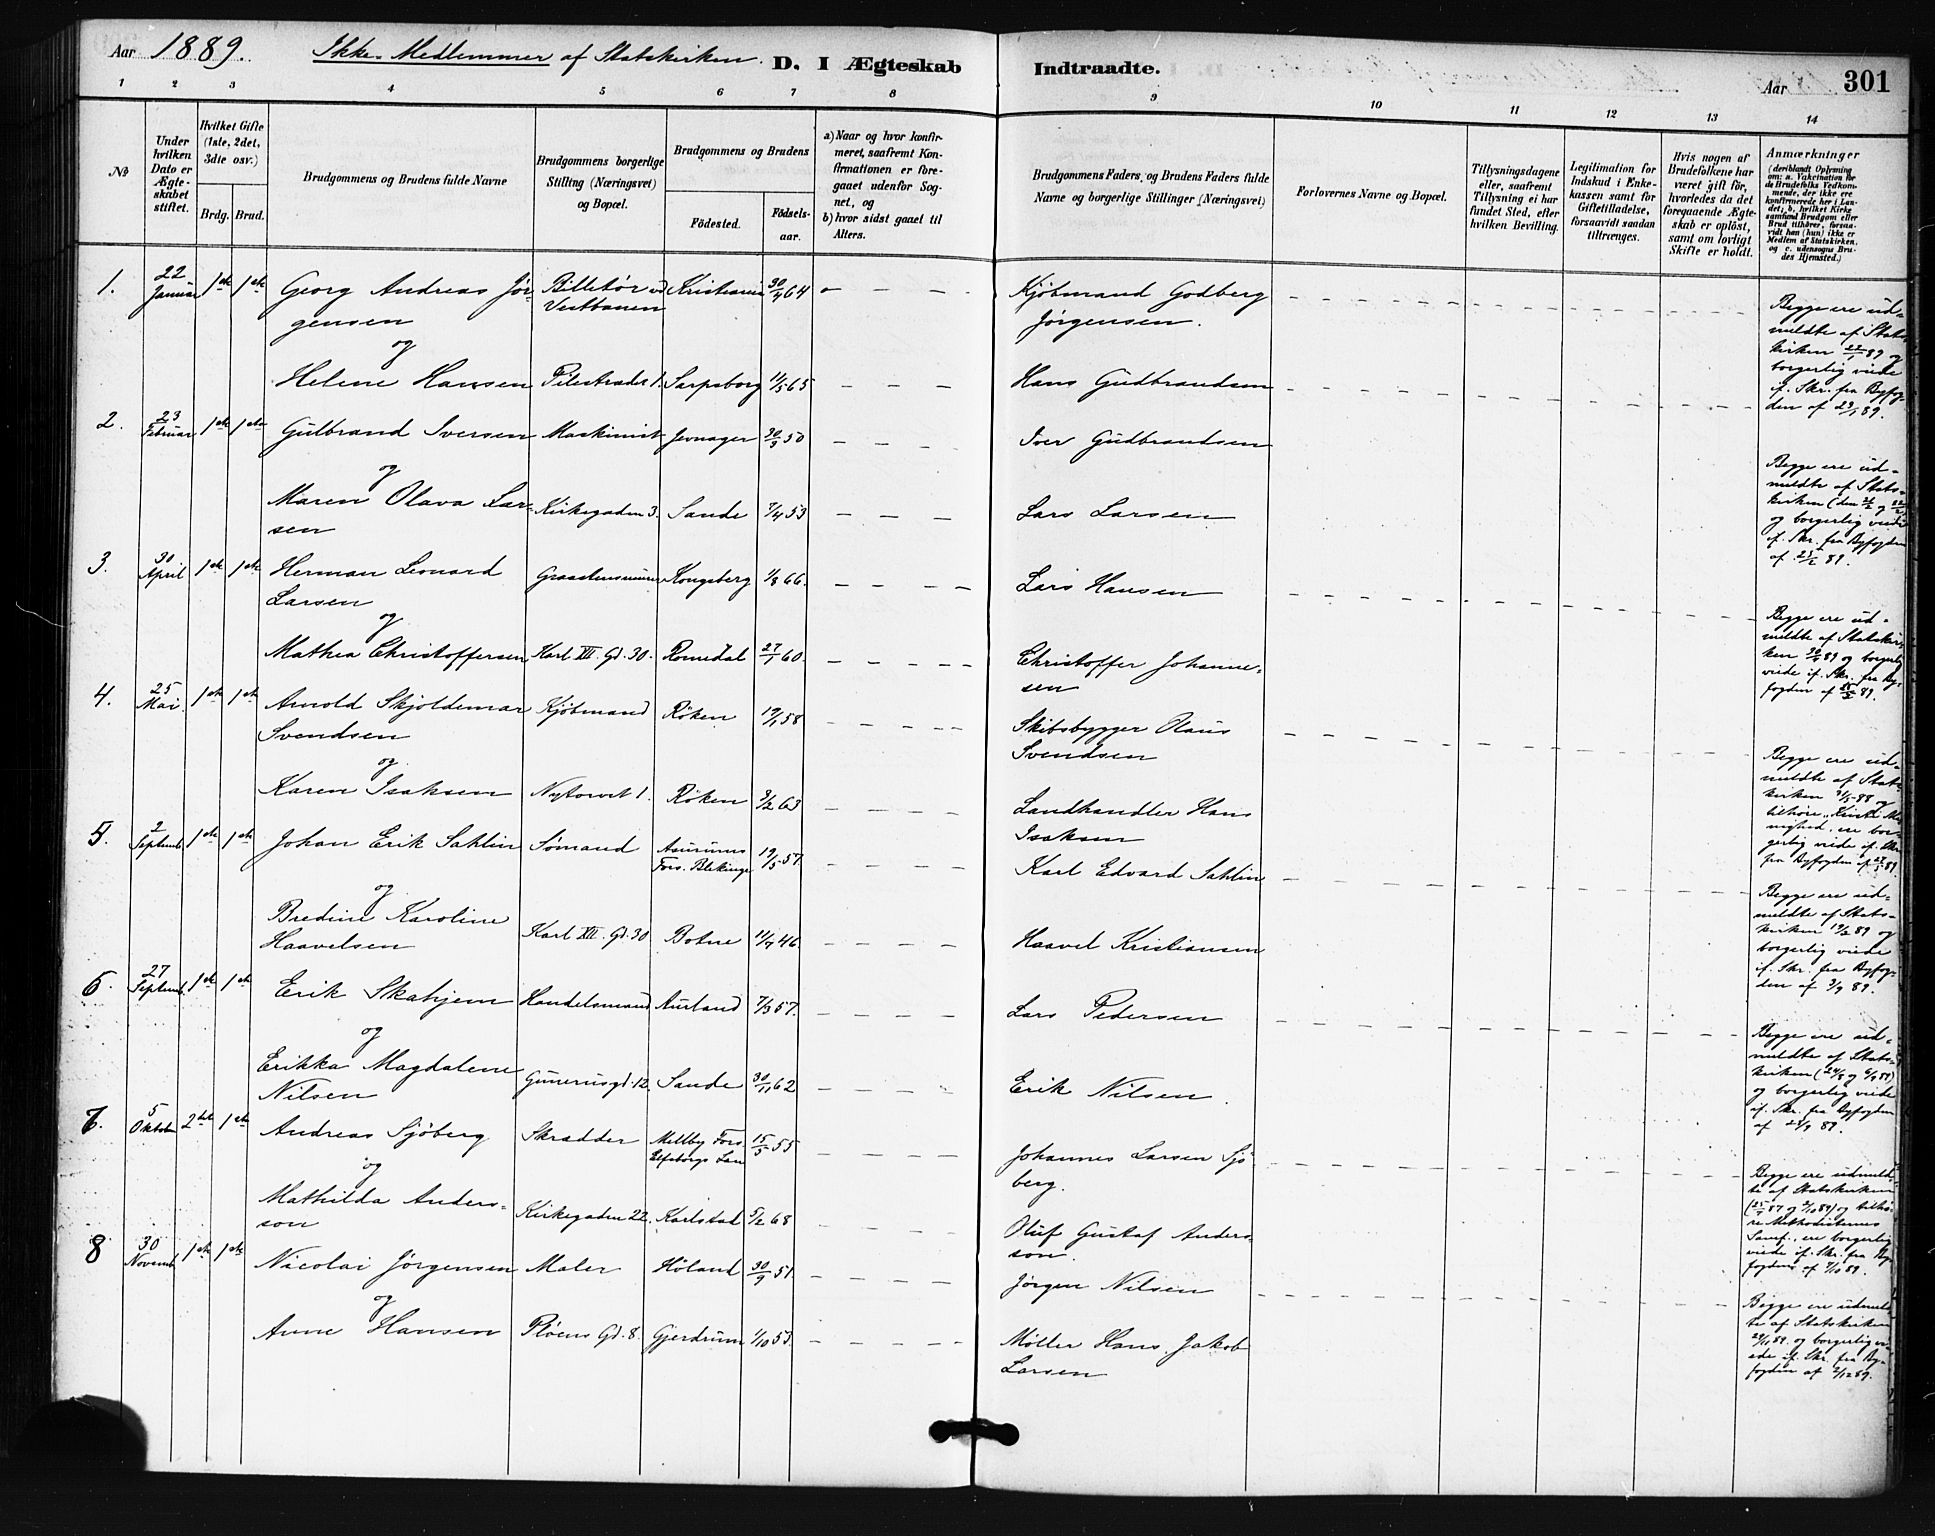 Aar 1889. Ikke Medlemmer af Statskirken. D. I Ægteskab Indtraadte. Aar 301
1 2 3 4 5 6 7 8 9 10 11 12 13 14
№
Under hvilken Dato er Ægteskabet stiftet.
Hvilket Gifte (1ste, 2det, 3die osv.)
Brdg. Brud.
Brudgommens og Brudens fulde Navne
Brudgommens borgerlige Stilling (Næringsvei) og Bopæl.
Brudgommens og Brudens
Födested. Födsels-aar.
a) Naar og hvor konfir-
meret, saafremt Kon-
firmationen er fore-
gaaet udenfor Sog-
net, og
b) hvor sidst gaaet til
Alters.
Brudgommens Faders og Brudens Faders fulde
Navne og borgerlige Stillinger (Næringsvei)
Forlovernes Navne og Bopæl.
Tillysningsdagene
eller, saafremt
Tillysning ei har
fundet Sted, efter
hvilken Bevilling.
Legitimation for
Indskud i Enke-
kassen samt for
Giftetilladelse,
forsaavidt saadan
tiltrænges.
Hvis nogen af
Brudefolkene har
været gift för,
hvorledes da det
foregaaende Ægte-
skab er oplöst,
samt om lovligt
Skifte er holdt.
Anmærkninger
(deriblandt Oplysning
om: a. Vakcination for
de Brudefolks Vedkom-
mende, der ikke ere
konfirmerede her i Lan-
det; b. hvilket Kirke-
samfund Brudgom eller
Brud tilhörer, forsaa-
vidt han (hun) ikke er
Medlem af Statskirken,
og c. udensogns Bru-
des Hjemsted.)
1. 22 Januar 1ste 1ste Georg Andreas Jör- Billetör ved Kristiania 30/4 64 Kjöbmand Godberg
gensen Vestbanen Jörgensen.
og
Helene Hansen Pilestrædet 1. Sarpsborg 11/5 65 Hans Gudbrandsen
Begge ere ud-
meldte af Stats-
kirken 22/1 89 og
borgerlig viede
if. Skr. fra Byfog-
den af 23/1 89.
2. 23 Februar 1ste 1ste Gulbrand Iversen Maskinist Jevnager 30/3 50 Iver Gudbrandsen
og
Maren Olava Lar- Kirkegaden 3. Sande 7/4 53 Lars Larsen
sen
Begge ere ud-
meldte af Stats-
kirken
og borgerlig viede
if. Skr. fra Byfogden
af 23/2 89.
3. 30 April 1ste 1ste Herman Leonard Kongsberg 1/8 66. Lars Hansen
Larsen
og
Mathea Christoffersen Karl XII. Gd. 30. Romedal 27/1 60. Christoffer Johanne-
sen
Begge ere ud-
meldte af Statskir-
ken 30/4 89 og borgerlig
viede if. Skr. fra By-
fogden af
4. 25 Mai 1ste 1ste Arnold Skjoldemar Kjöbmand Röken 19/1 58 Skibsbygger Olaus
Svendsen Svendsen
og
Karen Isaksen Nytorvet 1. Röken 3/2 63 Landhandler Hans
Isaksen
Begge ere ud-
meldte af Stats-
kirken og
tilhöre
nighed, ere bor-
gerlig viede if. Skr.
fra Byfogden af
5. 2 Septemb. 1ste 1ste Johan Erik Sahlin Sömand Asarums 19/5 57. Karl Edvard Sahlin
Fors. Blekinge
og
Bredine Karoline Karl XII. Gd. 30 Botne 11/9 46 Haavel Kristiansen
Haavelsen
Begge ere ud-
meldte af Stats-
kirken 19/2 89 og
borgerlig viede
if. Skr. fra Byfog-
den af 3/9 89.
6. 27 Septemb. 1ste 1ste Erik Skahjem Handelsmand Aurland 7/3 57. Lars Pedersen
og
Erikka Magdalene Gunerusgd. 12. Sande 30/11 62 Erik Nilsen.
Nilsen
Begge ere ud-
meldte af Stats-
kirken (24/8 og 6/9 89)
og borgerlig viede
if. Skr. fra Byfogden
af 89.
7. 5 Oktober 2det 1ste Andreas Sjöberg Skrædder Mellby Fors. 15/5 55 Johannes Larsen Sjö
Elfsborgs Län berg.
og
Mathilda Anders- Kirkegaden 22. Karlstad 5/2 68 Oluf Gustaf Anders-
son son.
Begge ere udmeld-
te af Statskirken
og tilhö-
re Methodisternes
Samf., ere borgerlig
viede if. Skr. fra By-
fogden af 7/10 89.
8 30 Novemb. 1ste 1ste Nicolai Jörgensen Maler Höland 30/9 51 Jörgen Nilsen
og
Anne Hansen Plöens Gd. 8. Gjerdrum 1/10 53. Möller Hans Jakob
Larsen
Begge ere udmeld-
te af Statskirken
29/11 89. og borgerlig vi-
ede if. Skr. fra By-
fogden af 2/12 89.